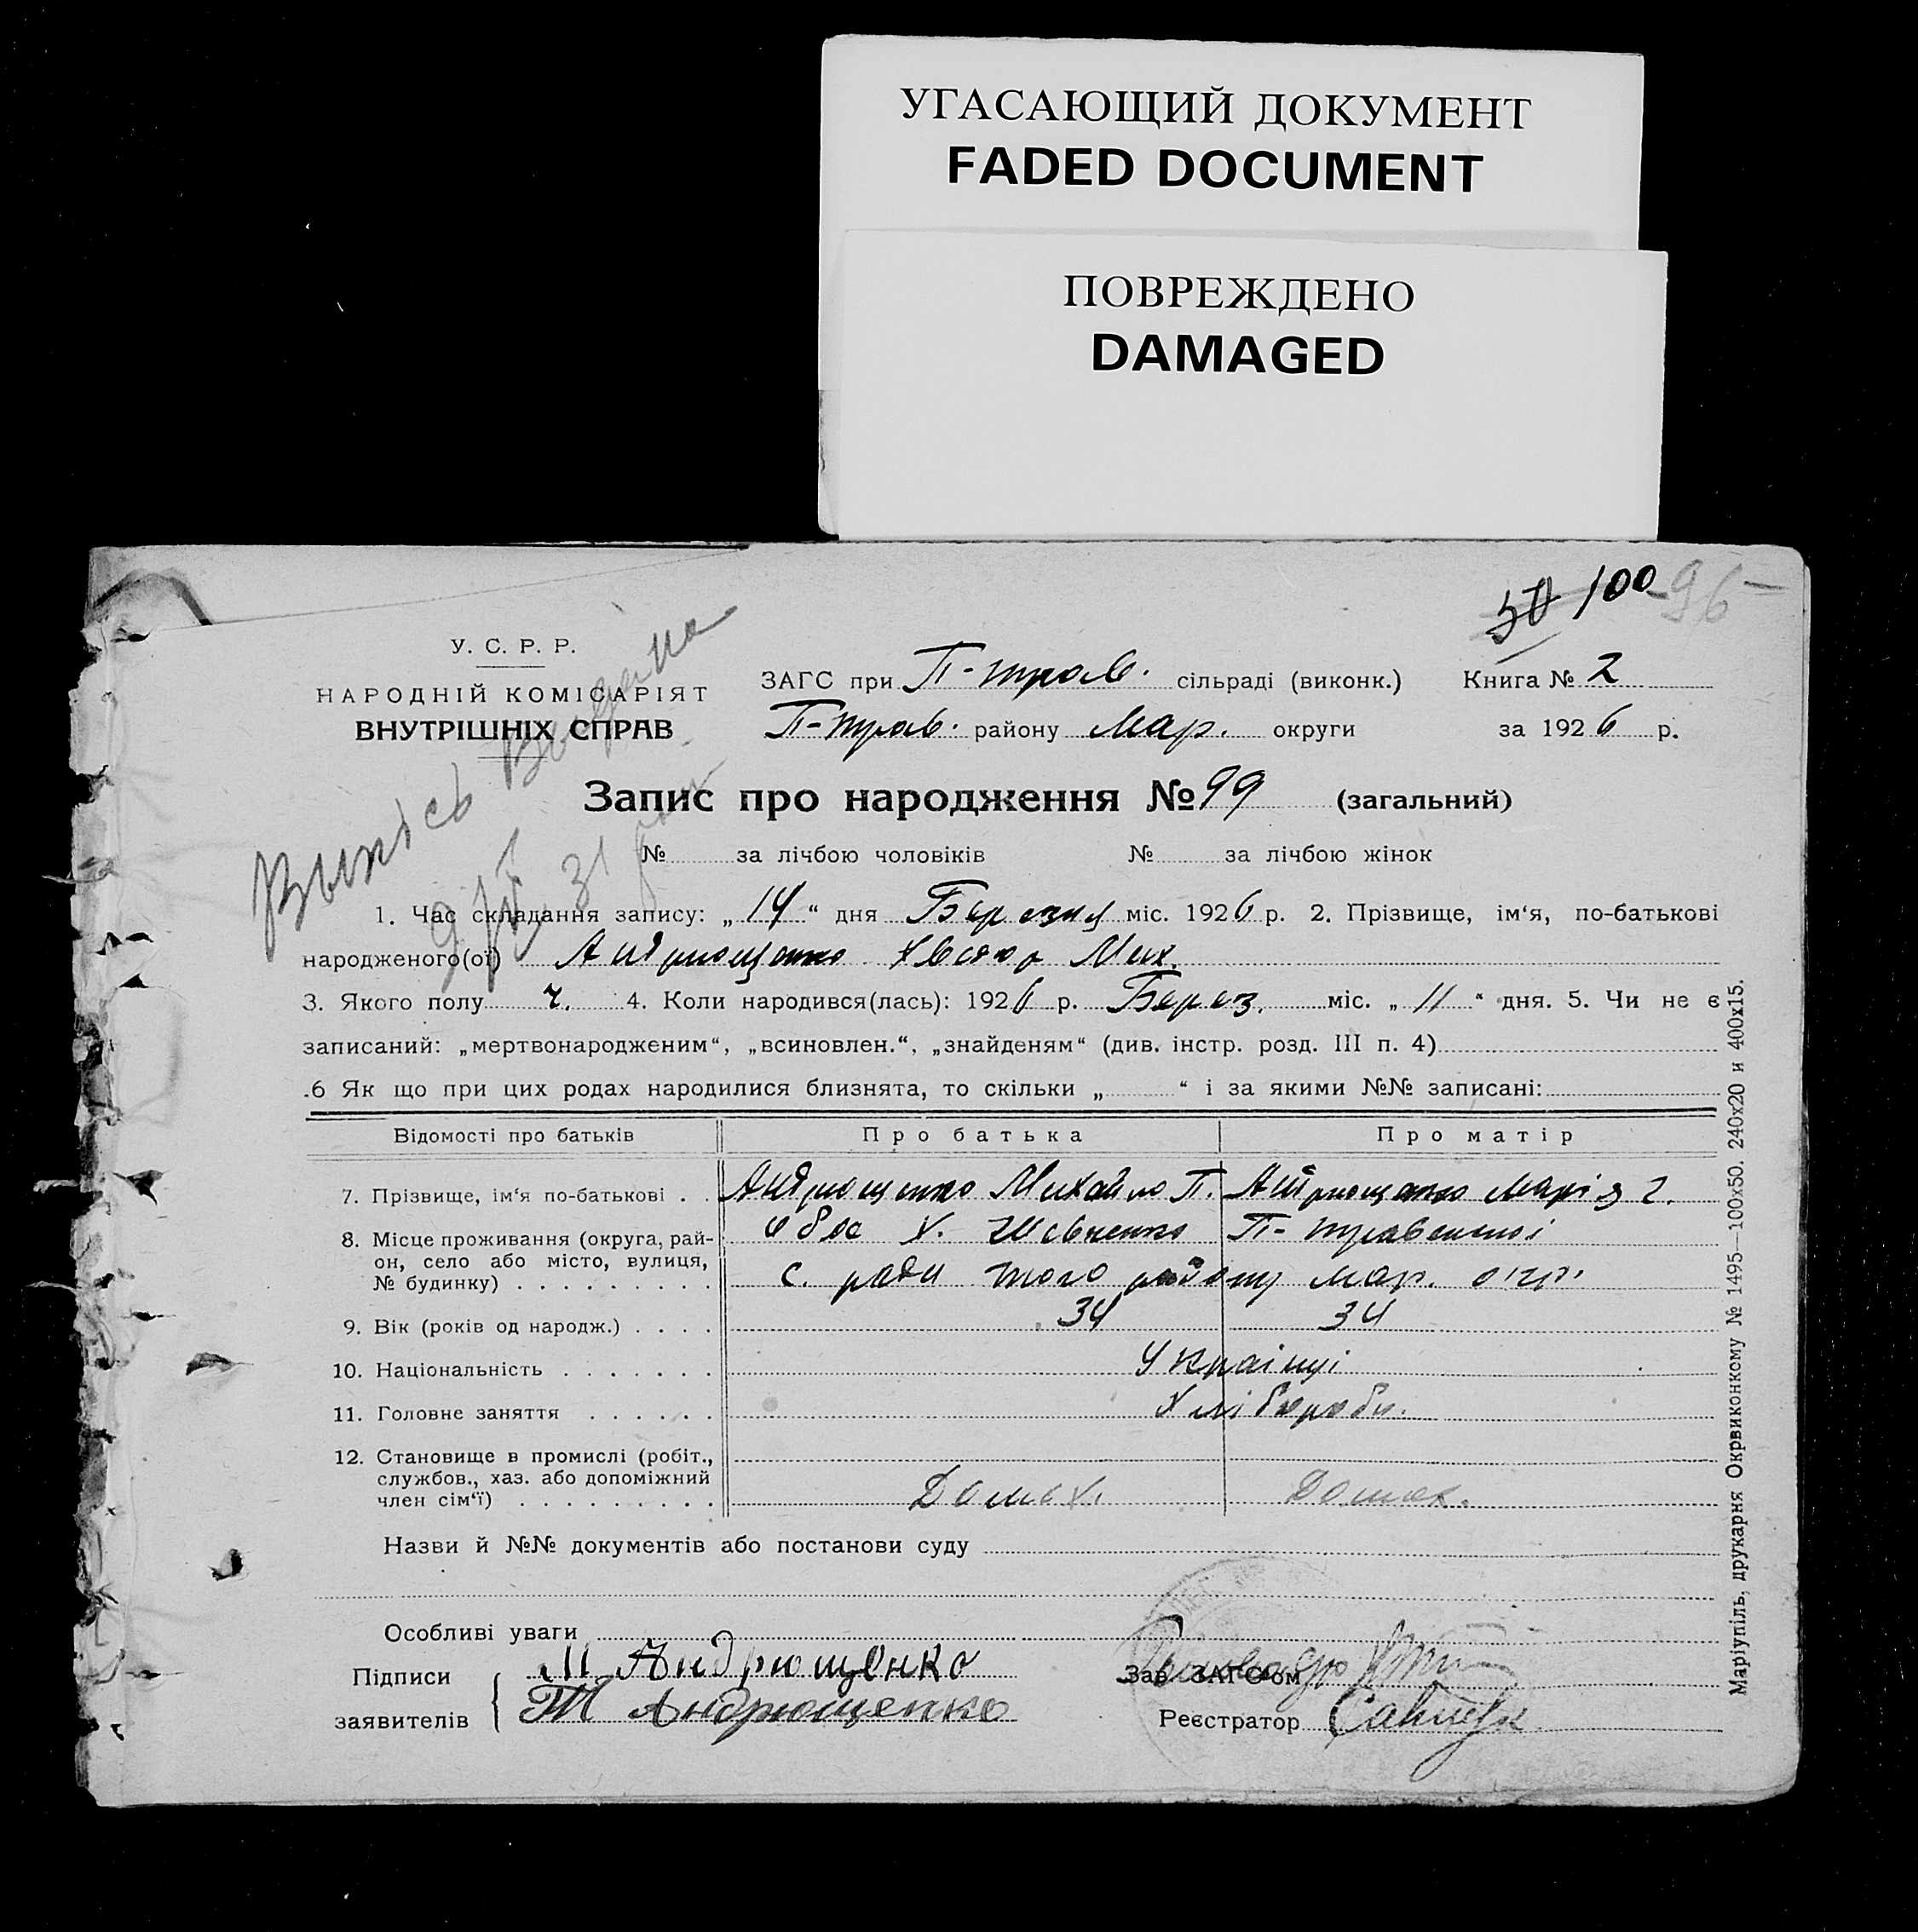 УГАСАЮЩИЙ ДОКУМЕНТ
FADED DOCUMENT
ПОВРЕЖДЕНО
DAMAGED
50 100 96
У. С. Р. Р.
НАРОДНІЙ КОМІСАРІЯТ
ВНУТРІШНІХ СПРАВ
ЗАГС при П-трав. сільраді (виконк.) Книга № 2
П-трав. району Мар. округи за 1926 р.
Запис про народження № 99 (загальний)
№ за лічбою чоловіків № за лічбою жінок
1. Час складання запису: „14“ дня Березня міс. 1926 р. 2. Прізвище, ім‘я, по-батькові
народженого(ої) Андрющенко Мих.
3. Якого полу ч. 4. Коли народився(лась): 1926 р. Берез. міс. „11“ дня. 5. Чи не є
записаний: „мертвонародженим“, „всиновлен.“, „знайденям“ (див. інстр. розд. III п. 4)
.6 Як що при цих родах народилися близнята, то скільки „ “ і за якими №№ записані:
Відомості про батьків Про батька Про матір
7. Прізвище, ім‘я по-батькові . . Андрющенко Михайло П. Андрющенко Марія Г.
8. Місце проживання (округа, рай-
он, село або місто, вулиця,
№ будинку) . . . . . . . . .
Х. Шевченко П-травенської
с. ради того району Мар. окр.
9. Вік (років од народж.) . . . . 34 34
10. Національність . . . . . . . Українці
11. Головне заняття . . . . . . Хлібороби.
12. Становище в промислі (робіт.,
службов., хаз. або допоміжний
член сім‘ї) . . . . . . . . . Домох. Домох.
Назви й №№ документів або постанови суду
Особливі уваги
Підписи М Андрющенко Зав. ЗАГС‘ом
заявителів Т Андрющенко Реєстратор
Маріупіль, друкарня Окрвиконкому № 1495—100х50. 240х20 и 400х15.
Выпись Выдана
31